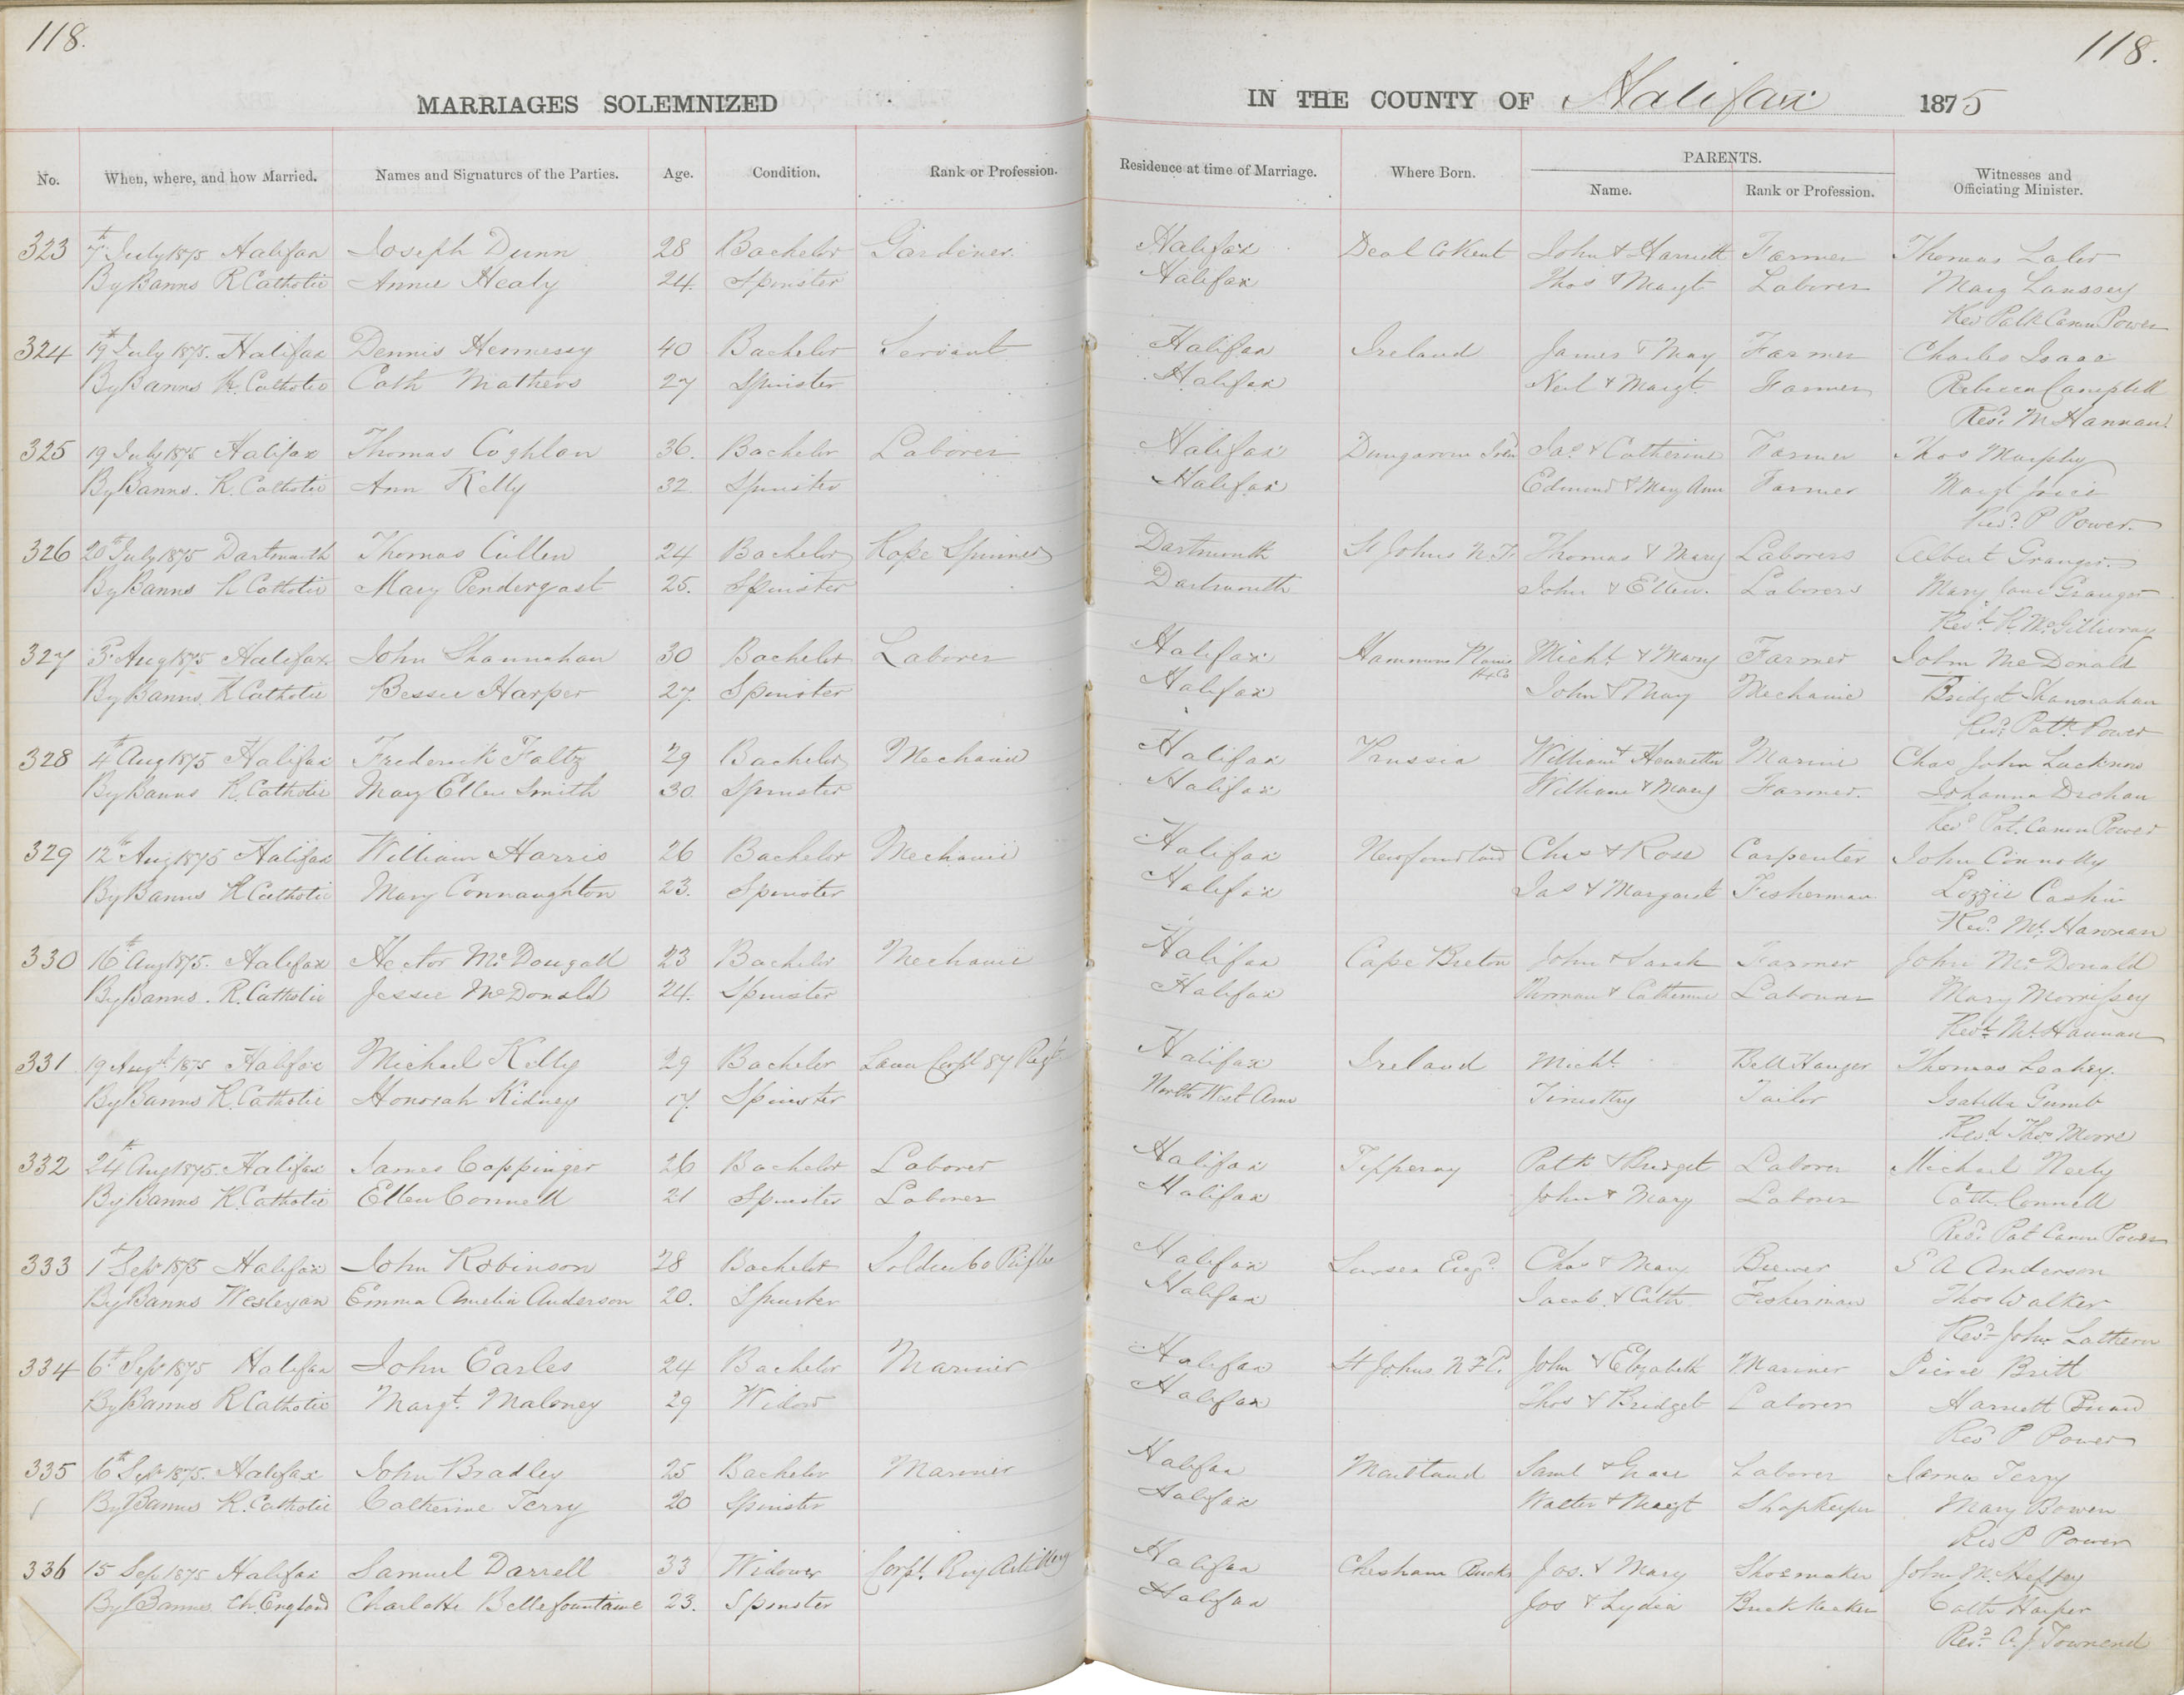 118.
118.
MARRIAGES SOLEMNIZED IN THE COUNTY OF Halifax 1875
No. When, where, and how Married. Names and Signatures of the Parties. Age. Condition. Rank or Profession. Residence at time of Marriage. Where Born. PARENTS. Name. Rank or Profession. Witnesses and Officiating Minister.
323 7th July 1875 Halifax Joseph Dunn 28 Bachelor Gardiner Halifax Deal Co Kent John & Harriett Farmer Thomas Lalor
By Banns R Catholic Annie Healy 24. Spinster Halifax Thos & Margt Laborer Mary
Rev Patk Canon Power
324 19th July 1875. Halifax Dennis Hennessy 40 Bachelor Servant Halifax Ireland James & Mary Farmer Charles Isaac
By Banns R. Catholic Cath Mathers 27 Spinster Halifax Neil & Margt. Farmer Rebecca Campbell
Revd. M Hannan
325 19 July 1875 Halifax Thomas Coghlan 36. Bachelor Laborer Halifax Dungarvon Jas. & Catherine Farmer Thos Murphy
By Banns. R. Catholic Ann Kelly 32 Spinster Halifax Edmond & Mary Ann Farmer Margt
Revd. P Power.
326 20th July 1875 Dartmouth Thomas Cullen 24 Bachelor Rope Spinner Dartmouth St Johns N.F. Thomas & Mary Laborers Albert Granger.
By Banns R Catholic Mary Pendergast 25. Spinster Dartmouth John & Ellen. Laborers Mary Jane Granger
Revd. R. McGillivray
327 3d Aug 1875 Halifax John Shannahan 30 Bachelor Laborer Halifax Hammons Plains Hx Co Michl. & Mary Farmer John McDonald
By Banns. R Catholic Bessie Harper 27. Spinster Halifax John & Mary Mechanic Bridget Shannahan
Revd. Patk. Power
328 4th Aug 1875 Halifax Frederick Faltz 29 Bachelor Mechanic Halifax Prussia William & Henrietta Marine Chas John Lucknow
By Banns R. Catholic Mary Ellen Smith 30. Spinster Halifax William & Mary Farmer. Johanna
Revd Pat. Canon Power
329 12th Aug 1875 Halifax William Harris 26 Bachelor Mechanic Halifax Newfoundland Chas & Rose Carpenter John Connolly
By Banns R Catholic Mary Connaughton 23. Spinster Halifax Jas & Margaret Fisherman Lizzie Cashin
Revd. M. Hannan
330 16th Aug 1875. Halifax Hector McDougall 23 Bachelor Mechanic Halifax Cape Breton John & Sarah Farmer John McDonald
By Banns. R. Catholic Jessie McDonald 24. Spinster Halifax Norman & Catherine Labourer Mary Morrissey
Revd. M. Hannan
331 19 Augst 1875 Halifax Michael Kelly 29 Bachelor Lance Corpl 87 Regt Halifax Ireland Michl. Bell Hanger Thomas Leahey.
By Banns R. Catholic Honorah Kidney 17. Spinster North West Arm Timothy Tailor Isabella Gumb
Revd Thos
332 24th Aug 1875. Halifax James Coppinger 26 Bachelor Laborer Halifax Tipperary Patk & Bridget Laborer Michael Neely
By Banns R. Catholic Ellen Connell 21 Spinster Laborer Halifax John & Mary Laborer Cath. Connell
Revd. Pat Canon Power
333 1st Sepr 1875 Halifax John Robinson 28 Bachelor Soldier 60 Rifles Halifax Engd. Chas & Mary Brewer S A Anderson
By Banns Wesleyan Emma Amelia Anderson 20. Spinster Halifax Jacob & Cath Fisherman Thos Walker
Revd. John Lathern
334 6th Sepr 1875 Halifax John Earles 24 Bachelor Mariner Halifax St Johns NFL John & Elizabeth Mariner Pierce Britt
By Banns R Catholic Margt. Maloney 29 Widow Halifax Thos & Bridget Laborer Harriett
Revd P Power
335 6th Sepr 1875. Halifax John Bradley 25 Bachelor Mariner Halifax Maitland Saml & Grace Laborer James Terry
By Banns R. Catholic Catherine Terry 20 Spinster Halifax Walter & Margt Shopkeeper Mary Bowen
Rev P Power
336 15 Sep 1875 Halifax Samuel Darrell 33 Widower Corpl. Roy Artillery Halifax Chesham Bucks Jos. & Mary Shoemaker John M. Heffey
By Banns. Ch. England Charlotte Bellefountaine 23. Spinster Halifax Jos & Lydia Cath Harper
Revd. A. J. Townend